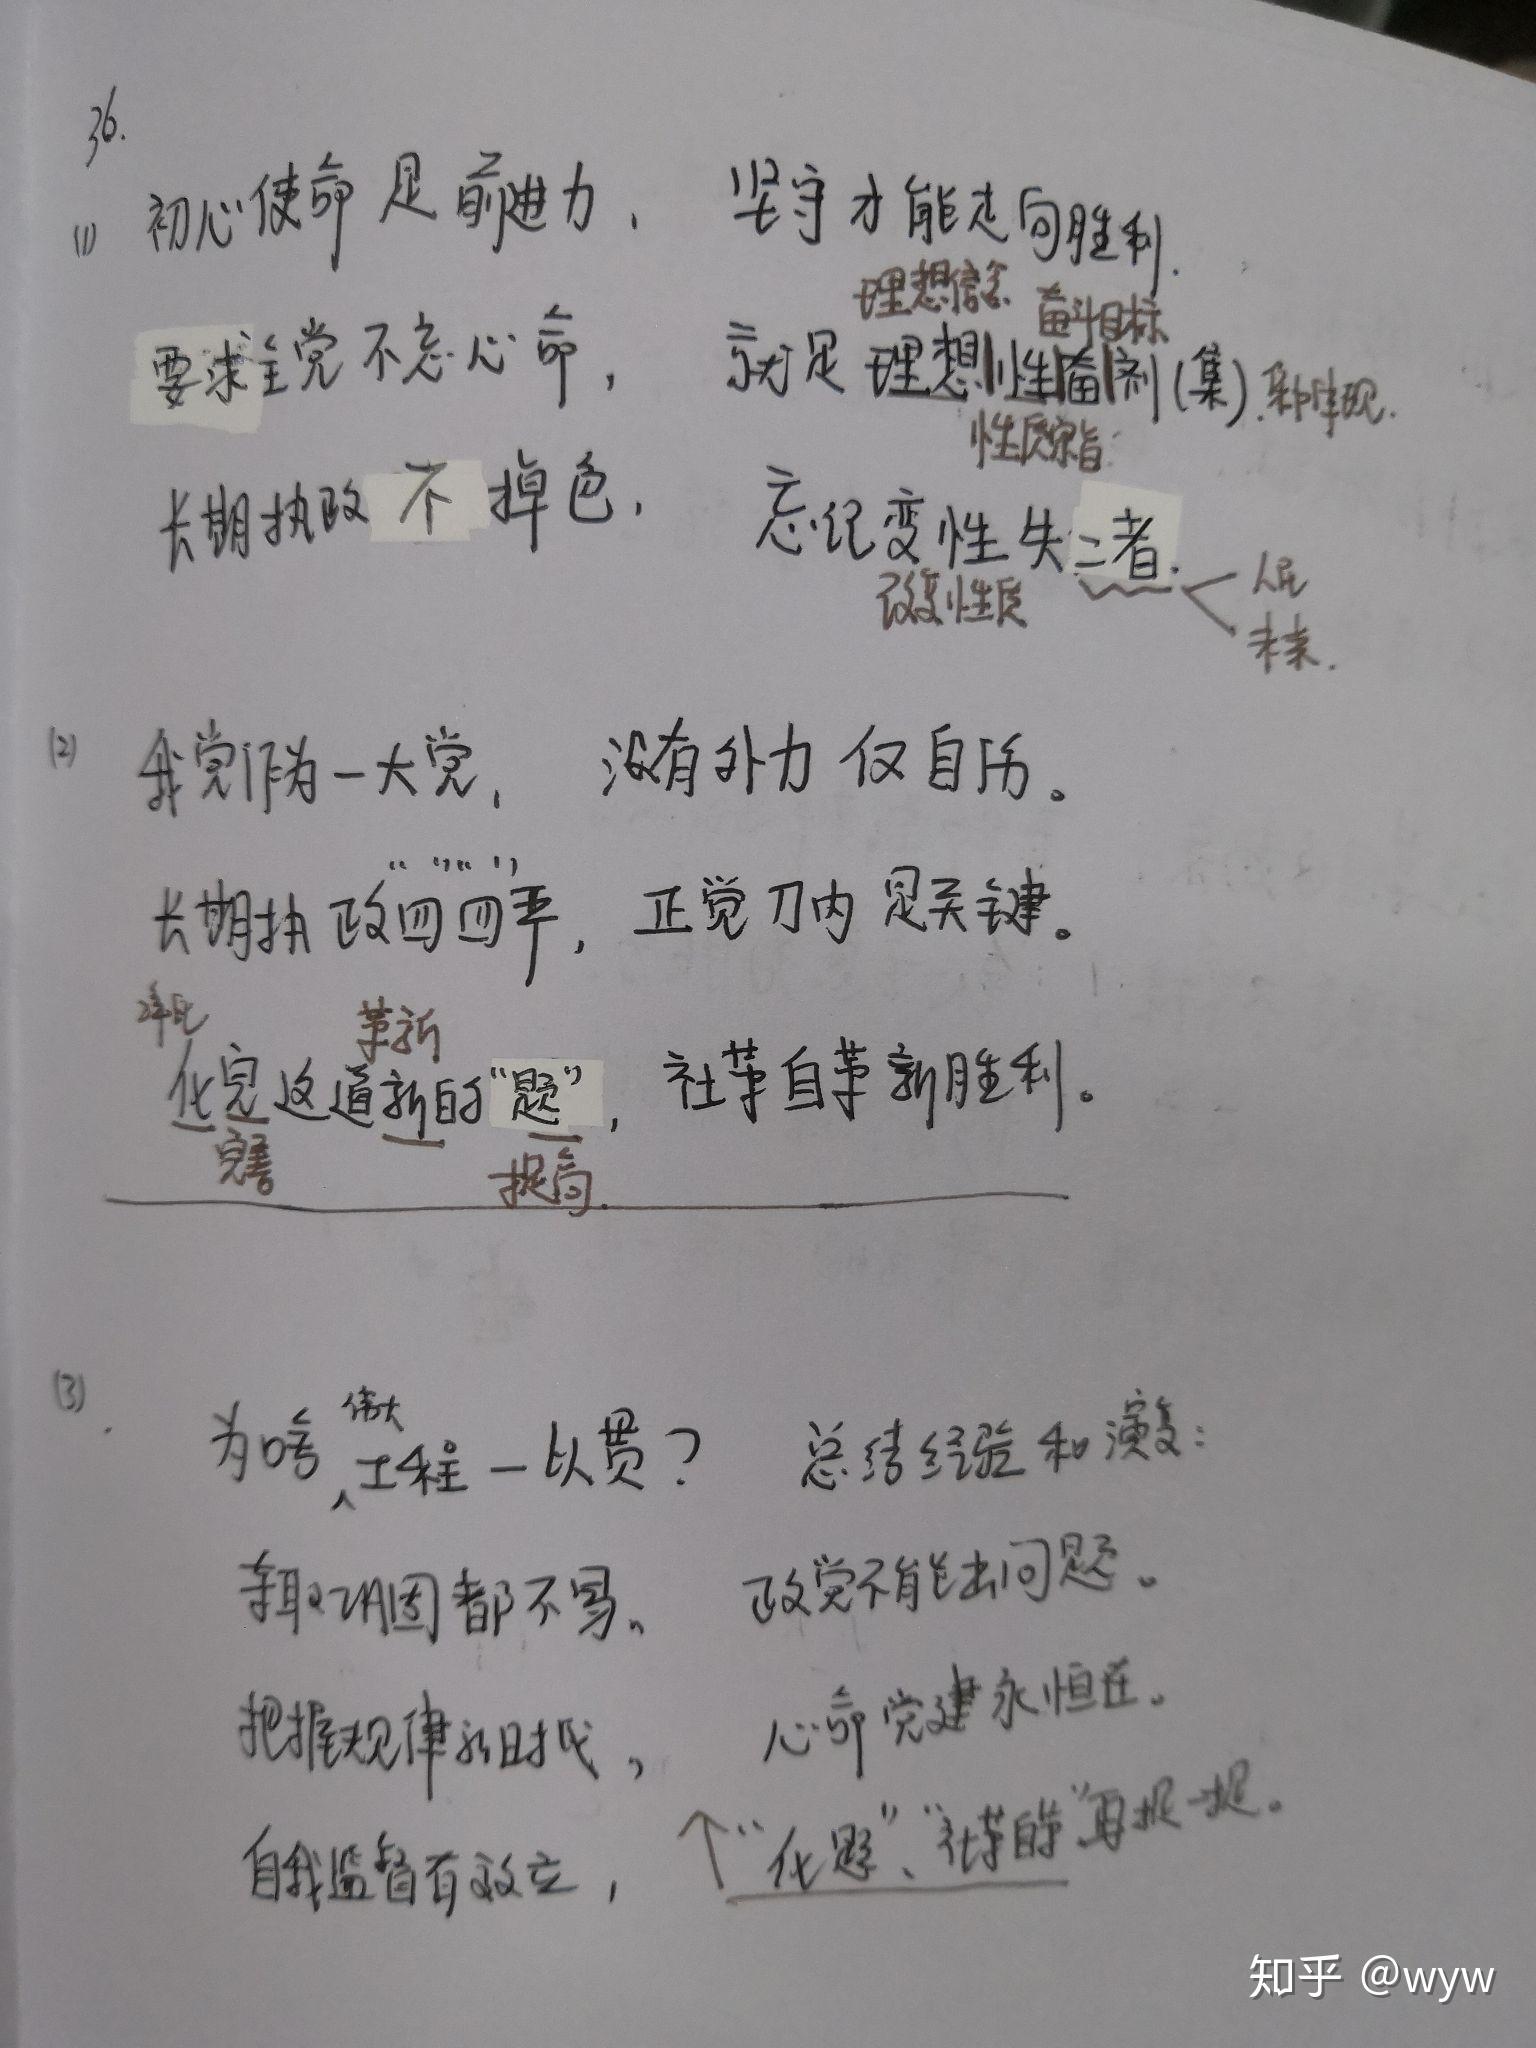 36.
(1) 初心使命是前进力, 坚守才能走向胜利.
理想信念 奋斗目标
要求全党不忘心命, 就是理想|性|奋|剂(集). 集中体现.
性质宗旨
长期执政不掉色, 忘记变性失二者.
改变性质
人民
未来.
(2) 我党作为一大党, 没有外力仅自历。
长期执政“四”“四”严, 正党刀内是关键。
净化 革新
化完这道新的“题”, 社革自革新胜利。
完善 提高.
(3). 为啥伟大工程一以贯? 总结经验和演变:
夺取巩固都不易、 政党不能出问题。
把握规律新时代, 心命党建永恒在。
自我监督有效立, ↑“化题”、“社革自革”再提一提。
知乎 @wyw